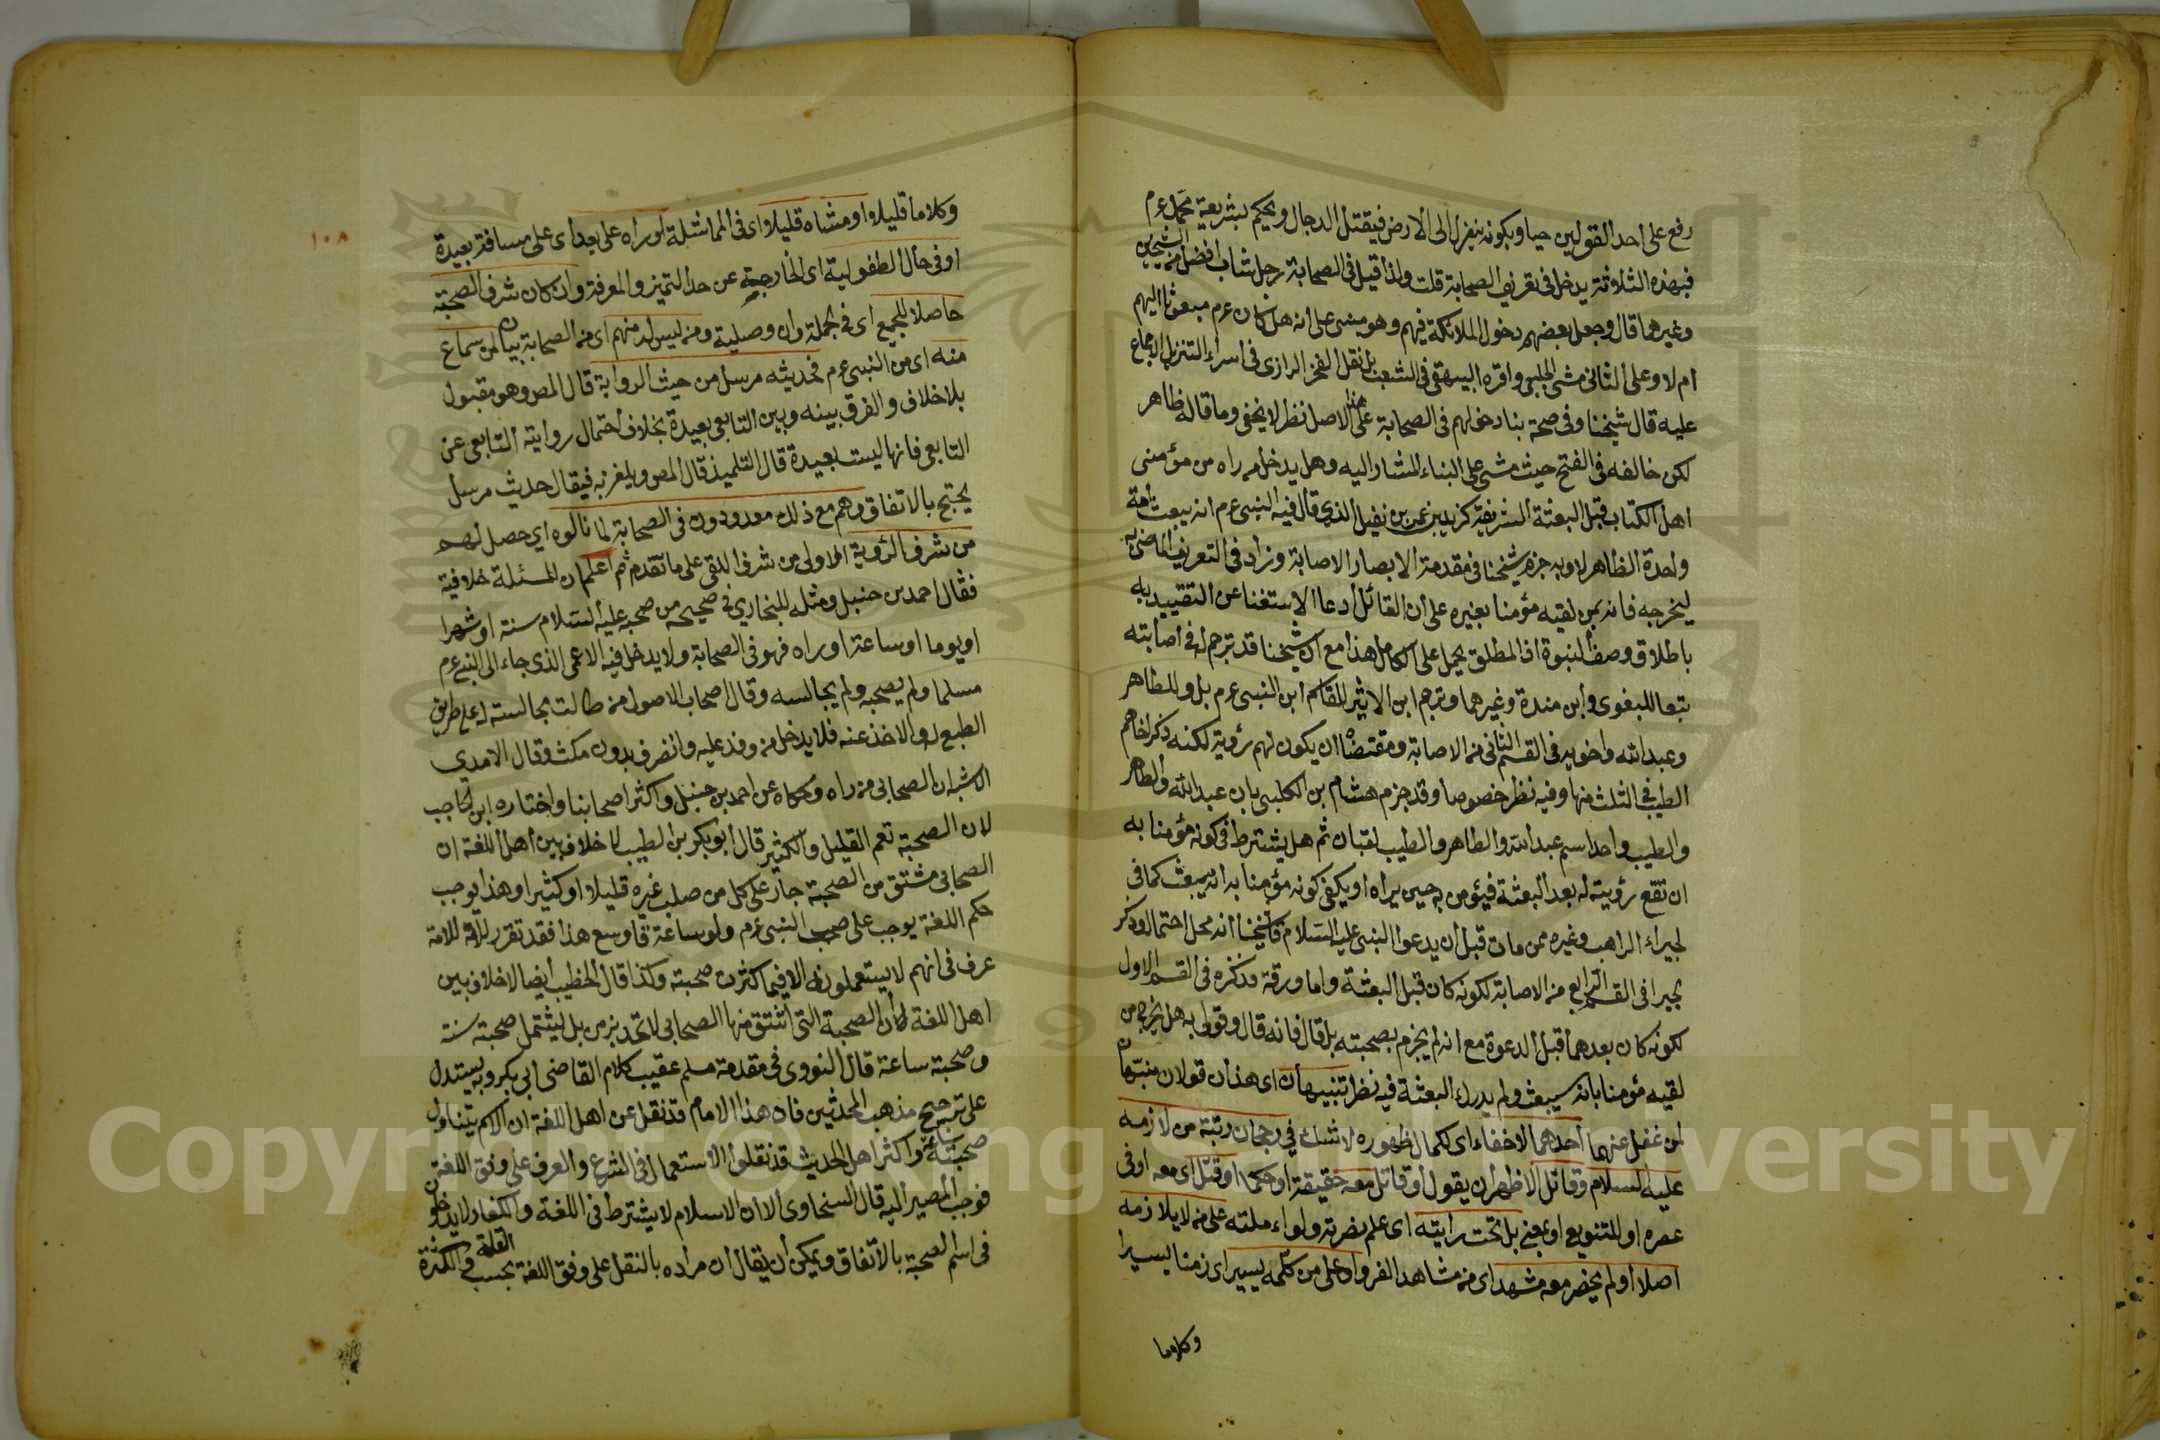 رفع على احد القولين حيا وبكونه ينزل الى الارض فيقتل الدجال ويحكم بشريعة محمد عم
فبهذه الثلاثة يدخل في تعريف الصحابة قلت ولذا قيل في الصحابة رجل شاب افضل من الشيخين
وغيرهما قال وجعل بعضهم دخول الملائكة فيهم وهو مبنى على انه هل كان عم مبعوثا اليهم
ام لا وعلى الثانى مشى الحليمى واقره البيهقى في الشعب بل نقل الفخر الرازى في اسراء التنزيل الاجماع
عليه قال شيخنا وفى صحة بنا دخولهم فى الصحابة على هذا الاصل نظر لا يخفى وما قاله ظاهر
لكن خالفه في الفتح حيث مشى على البناء المشار اليه وهل يدخل من راه من مؤمنى
اهل الكتاب قبل البعثة الشريفة كزيد بن عمرو بن نفيل الذى قال فيه النبى عم انه يبعث امة
واحدة الظاهر لا وبه جزم شيخنا في مقدمة الابصار الاصابة وزاد فى التعريف الماضى به
ليخرجه فانه ممن لقيه مؤمنا بغيره على ان القائل ادعا الاستغنا عن التقييد به
باطلاق وصف النبوة اذ المطلق يحمل على الكامل هذا مع ان شيخنا قد ترجم له في اصابته
تبعا للبغوى وابن مندة وغيرهما وترجم ابن الاثير للقاسم ابن النبى عم بل وللطاهر
وعبد الله واخويه في القسم الثانى من الاصابة ومقتضاه ان يكون لهم رؤية لكنه ذكر اخاهم
الطيب في الثلث منها وفيه نظر خصوصا وقد جزم هشام بن الكلبى بان عبد الله والطاهر
والطيب واحد اسم عبد الله والطاهر والطيب لقبان ثم هل يشترط فى كونه مؤمنا به
ان تقع رؤيته له بعد البعثة فيؤمن به حين يراه او يكفى كونه مؤمنا به انه يبعث كما فى
لبحيراء الراهب وغيره ممن مات قبل ان يدعوا النبى عليه السلام قال شيخنا انه محل احتمال وذكر
بحيرا فى القسم الرابع من الاصابة لكونه كان قبل البعثة واما ورقة فذكره فى القسم الاول
لكونه كان بعدهما قبل الدعوة مع انه لم يجزم بصحبته بل قال فانه قال وقولى به هل يخرج من
لقيه مؤمنا بانه سيبعث ولم يدرك البعثة فيه نظر تنبيهان اى هذان قولان منبهان
لمن غفل عنهما احدهما لا خفاء اى لكمال ظهوره لا شك في رجحان رتبة من لازمه
عليه السلام وقاتل الاظهر ان يقول او قاتل معه حقيقة او حكما او قتل اى معه او فى
عصره او للتنويع او بمعنى بل تحت رايته اى علم نصرته ولواء ملته على من لا يلازمه
اصلا او لم يحضر معه مشهدا اى من مشاهد الغز واو على من كلمه يسيرا اى زمنا يسيرا
وكلاما
١٠٨
وكلاما قليلا او مشاه قليلا اى فى المماشلة او راه على بعد اى على مسافة بعيدة
او فى حال الطفولية اى الخارجة عن حد التميز والمعرفة وان كان شرف الصحبة
حاصلا للجميع اى فى الجملة وان وصلية ومن ليس له منهم اى من الصحابة بيان لمن سماع
منه اى من النبى عم فحديثه مرسل من حيث الرواية قال المص وهو مقبول
بلا خلاف والفرق بينه وبين التابعى بعيدة بخلاف احتمال رواية التابعى عن
التابعى فانها ليست بعيدة قال التلميذ قال المص ويلغز به فيقال حديث مرسل
يحتج بالاتفاق وهم مع ذلك معدودون فى الصحابة لما نالوه اى حصل لهم
من شرف الرؤية الاولى من شرف اللقى على ما تقدم ثم اعلم ان المسئلة خلافية
فقال احمد بن حنبل ومثله للبخارى فى صحيحه من صحبه عليه السلام سنة او شهرا
او يوما او ساعة او راه فهو فى الصحابة ولا يدخل فيه الاعمى الذى جاء الى النبى عم
مسلما ولم يصحبه ولم يجالسه وقال اصحاب الاصول من طالت مجالسته له على طريق
الطبع له والاخذ عنه فلا يدخل من وفد عليه وانصرف بدون مكث وقال الامدى
الاشبه ان الصحابى من راه وحكاه عن احمد بن حنبل واكثر اصحابنا واختاره ابن الحاجب
لان الصحبة تعم القليل والكثير قال ابو بكر بن الطيب لا خلاف بين اهل اللغة ان
الصحابى مشتق من الصحبة جار على كل من صحب غيره قليلا او كثيرا وهذا يوجب
حكم اللغة يوجب على صحب النبى عم ولو ساعة قال ومع هذا فقد تقرر للامة
عرف فى انهم لا يستعملونه الا فيما كثرت صحبته وكذا قال الخطيب ايضا لا خلاف بين
اهل اللغة ان الصحبة التى اشتق منها الصحابى لا تحد بزمن بل يشتمل صحبته سنة
وصحبة ساعة قال النووى فى مقدمة مسلم عقيب كلام القاضى ابى بكر وبه يستدل
على ترجيح مذهب المحدثين فان هذا الامام قد نقل عن اهل اللغة ان الاسم يتناول
صحبته ساعة واكثر اهل الحديث قد نقلوا الاستعمال فى الشرع والعرف على وفق اللغة
فوجب المصير اليه قال السخاوى الا ان الاسلام لا يشترط فى اللغة والكفار لا يدخلون
فى اسم الصحبة بالاتفاق ويمكن ان يقال ان مراده بالنقل على وفق اللغة بحسب القلة والكثرة
Copyright © King Saud University